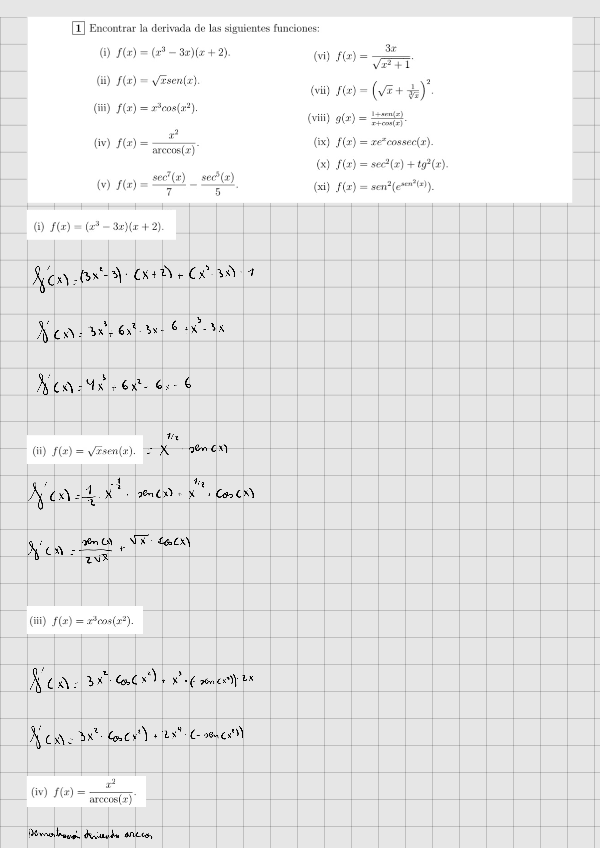 1 Encontrar la derivada de las siguientes funciones:
(i) f(x) = (x³ − 3x)(x + 2).
(ii) f(x) = √x sen(x).
(iii) f(x) = x³cos(x²).
(iv) f(x) = x² / arccos(x).
(v) f(x) = sec⁷(x)/7 − sec⁵(x)/5.
(vi) f(x) = 3x / √(x² + 1).
(vii) f(x) = (√x + 1/∛x)².
(viii) g(x) = (1+sen(x))/(x+cos(x)).
(ix) f(x) = xeˣcossec(x).
(x) f(x) = sec²(x) + tg²(x).
(xi) f(x) = sen²(e^(sen²(x))).
(i) f(x) = (x³ − 3x)(x + 2).
f'(x) = (3x² − 3) · (x + 2) + (x³ − 3x) · 1
f'(x) = 3x³ + 6x² − 3x − 6 + x³ − 3x
f'(x) = 4x³ + 6x² − 6x − 6
(ii) f(x) = √x sen(x). = x^(1/2) · sen(x)
f'(x) = 1/2 · x^(−1/2) · sen(x) + x^(1/2) · cos(x)
f'(x) = sen(x)/(2√x) + √x · cos(x)
(iii) f(x) = x³cos(x²).
f'(x) = 3x² · cos(x²) + x³ · (−sen(x²)) · 2x
f'(x) = 3x² · cos(x²) + 2x⁴ · (−sen(x²))
(iv) f(x) = x² / arccos(x).